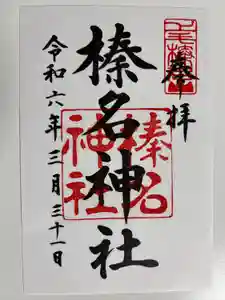 奉拝
榛名神社
榛名神社
令和六年三月三十一日